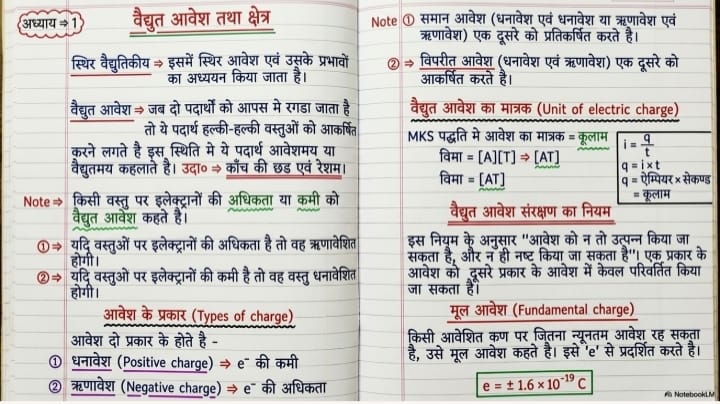 अध्याय ⇒ 1
वैद्युत आवेश तथा क्षेत्र
स्थिर वैद्युतिकीय ⇒ इसमें स्थिर आवेश एवं उसके प्रभावों
का अध्ययन किया जाता है।
वैद्युत आवेश ⇒ जब दो पदार्थों को आपस मे रगडा जाता है
तो ये पदार्थ हल्की-हल्की वस्तुओं को आकर्षित
करने लगते है इस स्थिति मे ये पदार्थ आवेशमय या
वैद्युतमय कहलाते है। उदा० ⇒ काँच की छड एवं रेशम।
Note ⇒ किसी वस्तु पर इलेक्ट्रानों की अधिकता या कमी को
वैद्युत आवेश कहते है।
① ⇒ यदि वस्तुओं पर इलेक्ट्रानों की अधिकता है तो वह ऋणावेशित
होगी।
② ⇒ यदि वस्तुओ पर इलेक्ट्रानों की कमी है तो वह वस्तु धनावेशित
होगी।
आवेश के प्रकार (Types of charge)
आवेश दो प्रकार के होते है -
① धनावेश (Positive charge) ⇒ e⁻ की कमी
② ऋणावेश (Negative charge) ⇒ e⁻ की अधिकता
Note ① समान आवेश (धनावेश एवं धनावेश या ऋणावेश एवं
ऋणावेश) एक दूसरे को प्रतिकर्षित करते है।
② ⇒ विपरीत आवेश (धनावेश एवं ऋणावेश) एक दूसरे को
आकर्षित करते है।
वैद्युत आवेश का मात्रक (Unit of electric charge)
MKS पद्धति मे आवेश का मात्रक = कूलाम
विमा = [A][T] ⇒ [AT]
विमा = [AT]
i = q/t
q = i × t
q = ऐम्पियर × सेकण्ड
= कूलाम
वैद्युत आवेश संरक्षण का नियम
इस नियम के अनुसार "आवेश को न तो उत्पन्न किया जा
सकता है, और न ही नष्ट किया जा सकता है"। एक प्रकार के
आवेश को दूसरे प्रकार के आवेश में केवल परिवर्तित किया
जा सकता है।
मूल आवेश (Fundamental charge)
किसी आवेशित कण पर जितना न्यूनतम आवेश रह सकता
है, उसे मूल आवेश कहते है। इसे 'e' से प्रदर्शित करते है।
e = ± 1.6 × 10⁻¹⁹ C
NotebookLM